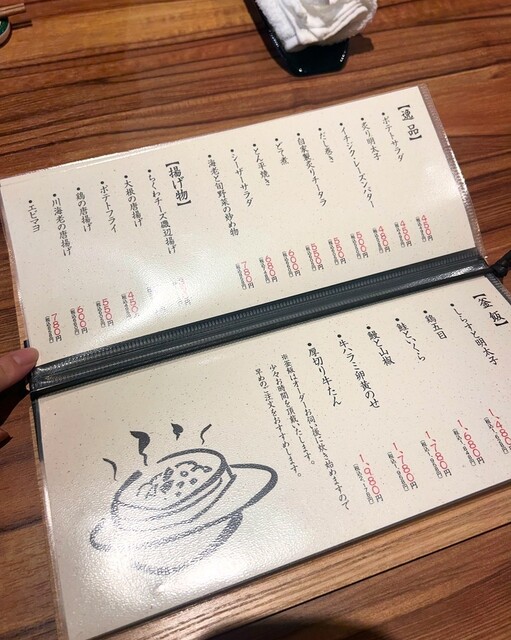 【逸品】
・ポテトサラダ 450円
・炙り明太子 450円
・イチジクレーズンバター 480円
・だし巻き 500円
・自家製炙りチータラ 550円
・どて煮 550円
・とん平焼き 600円
・シーザーサラダ 680円
・海老と旬野菜の炒め物 780円
【揚げ物】
・ちくわチーズ磯辺揚げ
・大根の唐揚げ
・ポテトフライ 450円
・鶏の唐揚げ 550円
・川海老の唐揚げ 600円
・エビマヨ 780円
【釜飯】
・しらすと明太子 1,480円
・鶏五目
・鮭といくら 1,680円
・鯛と山椒 1,780円
・牛ハラミ卵黄のせ 1,780円
・厚切り牛たん 1,980円
※釜飯はオーダーお伺い後に炊き始めますので
少々お時間を頂戴いたします。
早めのご注文をおすすめします。